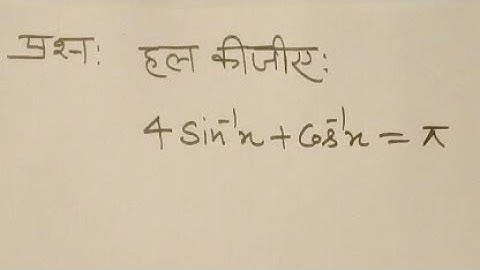 प्रश्न: हल कीजीए:
4 Sin⁻¹x + Cos⁻¹x = π